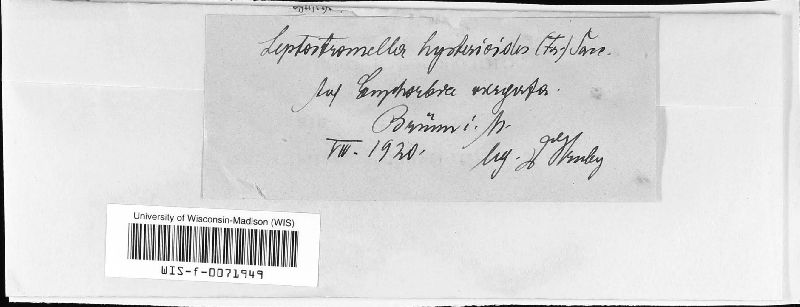 Leptostromella hysterioides (Fr.) Sacc.
Auf Euphorbia virgata.
Brünn i. M.
VIII. 1920. leg.
University of Wisconsin-Madison (WIS)
WIS-f-0071949